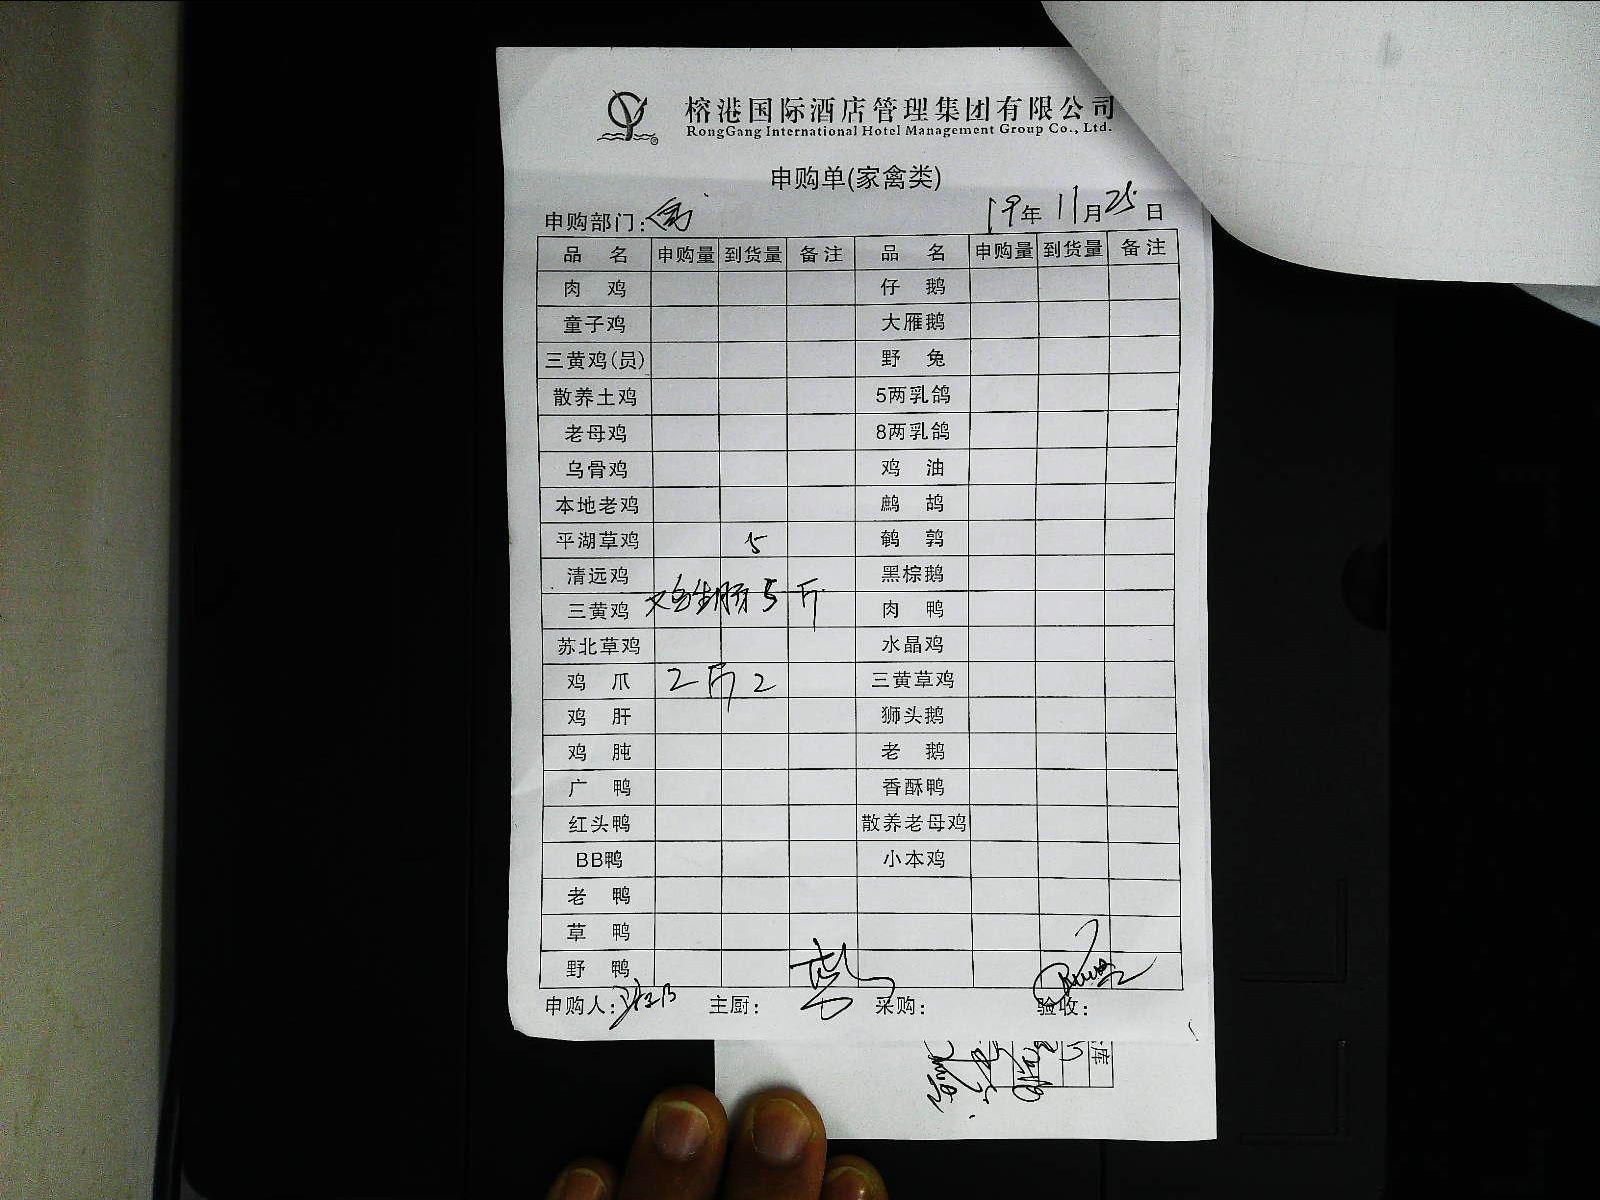 榕港国际酒店管理集团有限公司
RongGang International Hotel Management Group Co., Ltd.
申购单(家禽类)
申购部门:
19年 11月 25日
品 名 申购量 到货量 备注 品 名 申购量 到货量 备注
肉 鸡 仔 鹅
童子鸡 大雁鹅
三黄鸡(员) 野 兔
散养土鸡 5两乳鸽
老母鸡 8两乳鸽
乌骨鸡 鸡 油
本地老鸡 鹧 鸪
平湖草鸡 5 鹌 鹑
清远鸡 黑棕鹅
三黄鸡 鸡生肠5斤 肉 鸭
苏北草鸡 水晶鸡
鸡 爪 2斤 2 三黄草鸡
鸡 肝 狮头鹅
鸡 肫 老 鹅
广 鸭 香酥鸭
红头鸭 散养老母鸡
BB鸭 小本鸡
老 鸭
草 鸭
野 鸭
申购人: 主厨: 采购: 验收:
库